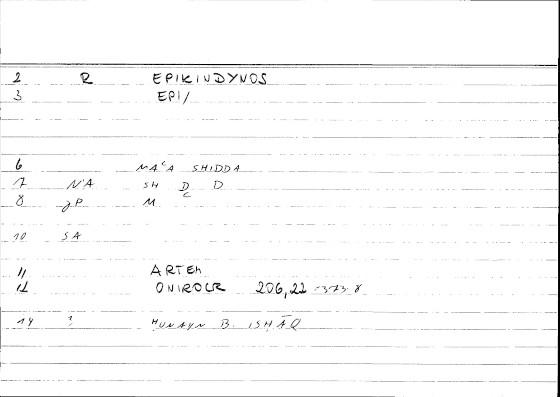 2 R EPIKINDYNOS
3 EPI/
6 MAʿA SHIDDA
7 N'A SH D D
C
8 JP M
10 SA
11 ARTEM
12 ONIROCR 206,22 = 373,8
14 ? HUNAYN B. ISHĀQ